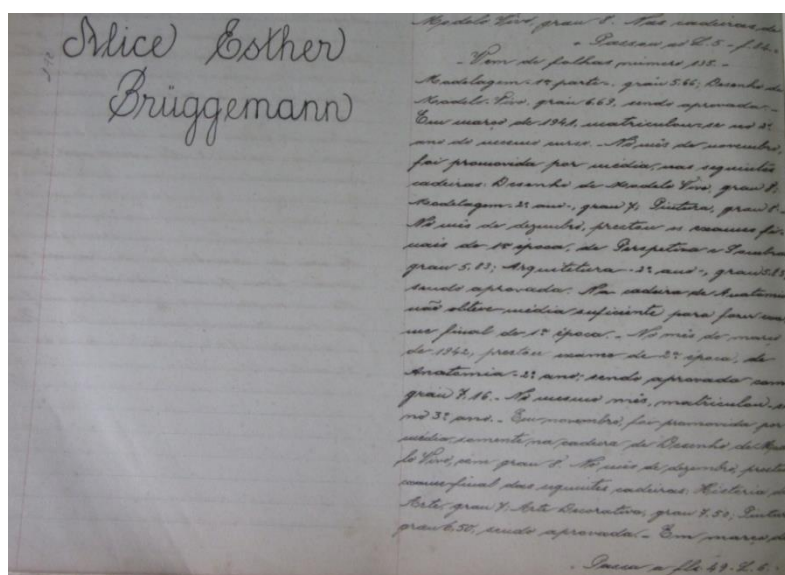 Alice Esther
Brüggemann
Modelo Vivo, grau 8. Nas cadeiras de
- Passou ao L.5 - f.84. -
- Vem de folhas número 135. -
Modelagem - 1ª parte -, grau 5.66; Desenho de
Modelo Vivo, grau 6.63, sendo aprovada. -
Em março de 1941, matriculou-se no 2º
ano do mesmo curso. - No mês de novembro,
foi promovida por média, nas seguintes
cadeiras: Desenho de Modelo Vivo, grau 8;
Modelagem - 2º ano -, grau 7; Pintura, grau 8. -
No mês de dezembro, prestou os exames fi-
nais de 1ª época, de Perspetiva e Sombra
grau 5.83; Arquitetura - 2º ano -, grau 5.83
sendo aprovada. Na cadeira de Anatomia
não obteve média suficiente para fazer exa-
me final de 1ª época. - No mês de março
de 1942, prestou exame de 2ª época, de
Anatomia - 2º ano; sendo aprovada com
grau 7,16. - No mesmo mês, matriculou-se
no 3º ano. - Em novembro, foi promovida por
média, somente na cadeira de Desenho de Mode-
lo Vivo, com grau 8. No mês de dezembro, prestou
exame final das seguintes cadeiras: História da
Arte, grau 7; Arte Decorativa, grau 7,50; Pintura
grau 6.50, sendo aprovada. - Em março de
- Passa a fls. 49 - L. 6. -